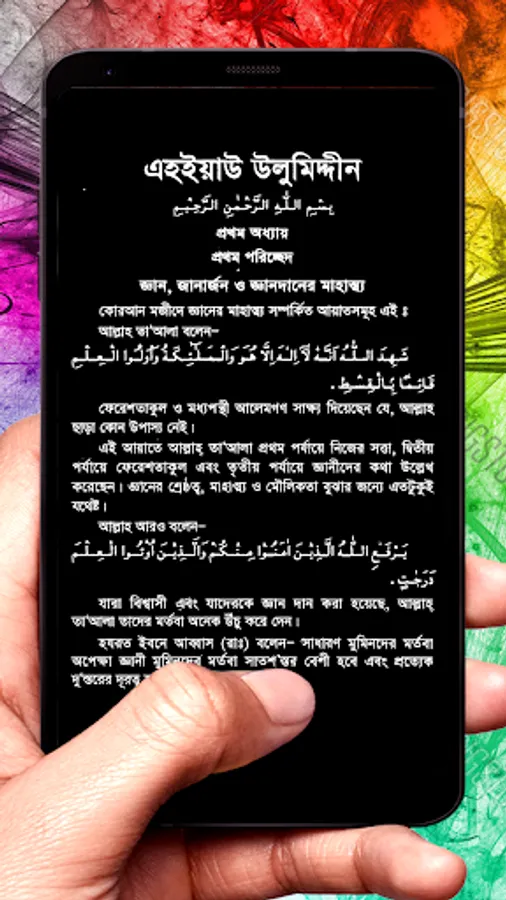 এহইয়াউ উলুমিদ্দীন
بِسْمِ اللّٰهِ الرَّحْمٰنِ الرَّحِيْمِ
প্রথম অধ্যায়
প্রথম পরিচ্ছেদ
জ্ঞান, জানার্জন ও জ্ঞানদানের মাহাত্ম্য
কোরআন মজীদে জ্ঞানের মাহাত্ম্য সম্পর্কিত আয়াতসমূহ এই ঃ
আল্লাহ তা'আলা বলেন–
شَهِدَ اللّٰهُ اَنَّهٗ لَآ اِلٰهَ اِلَّا هُوَ وَالْمَلٰٓئِكَةُ وَاُولُوا الْعِلْمِ
قَائِمًا بِالْقِسْطِ .
ফেরেশতাকুল ও মধ্যপন্থী আলেমগণ সাক্ষ্য দিয়েছেন যে, আল্লাহ
ছাড়া কোন উপাস্য নেই।
এই আয়াতে আল্লাহ্ তা'আলা প্রথম পর্যায়ে নিজের সত্তা, দ্বিতীয়
পর্যায়ে ফেরেশতাকুল এবং তৃতীয় পর্যায়ে জ্ঞানীদের কথা উল্লেখ
করেছেন। জ্ঞানের শ্রেষ্ঠত্ব, মাহাত্ম্য ও মৌলিকতা বুঝার জন্যে এতটুকুই
যথেষ্ট।
আল্লাহ আরও বলেন–
يَرْفَعِ اللّٰهُ الَّذِيْنَ اٰمَنُوْا مِنْكُمْ وَالَّذِيْنَ اُوْتُوا الْعِلْمَ
دَرَجٰتٍ .
যারা বিশ্বাসী এবং যাদেরকে জ্ঞান দান করা হয়েছে, আল্লাহ্
তা'আলা তাদের মর্তবা অনেক উঁচু করে দেন।
হযরত ইবনে আব্বাস (রাঃ) বলেন– সাধারণ মুমিনদের মর্তবা
অপেক্ষা জ্ঞানী মুমিনদের মর্তবা সাতশ'স্তর বেশী হবে এবং প্রত্যেক
দু'স্তরের দূরত্ব